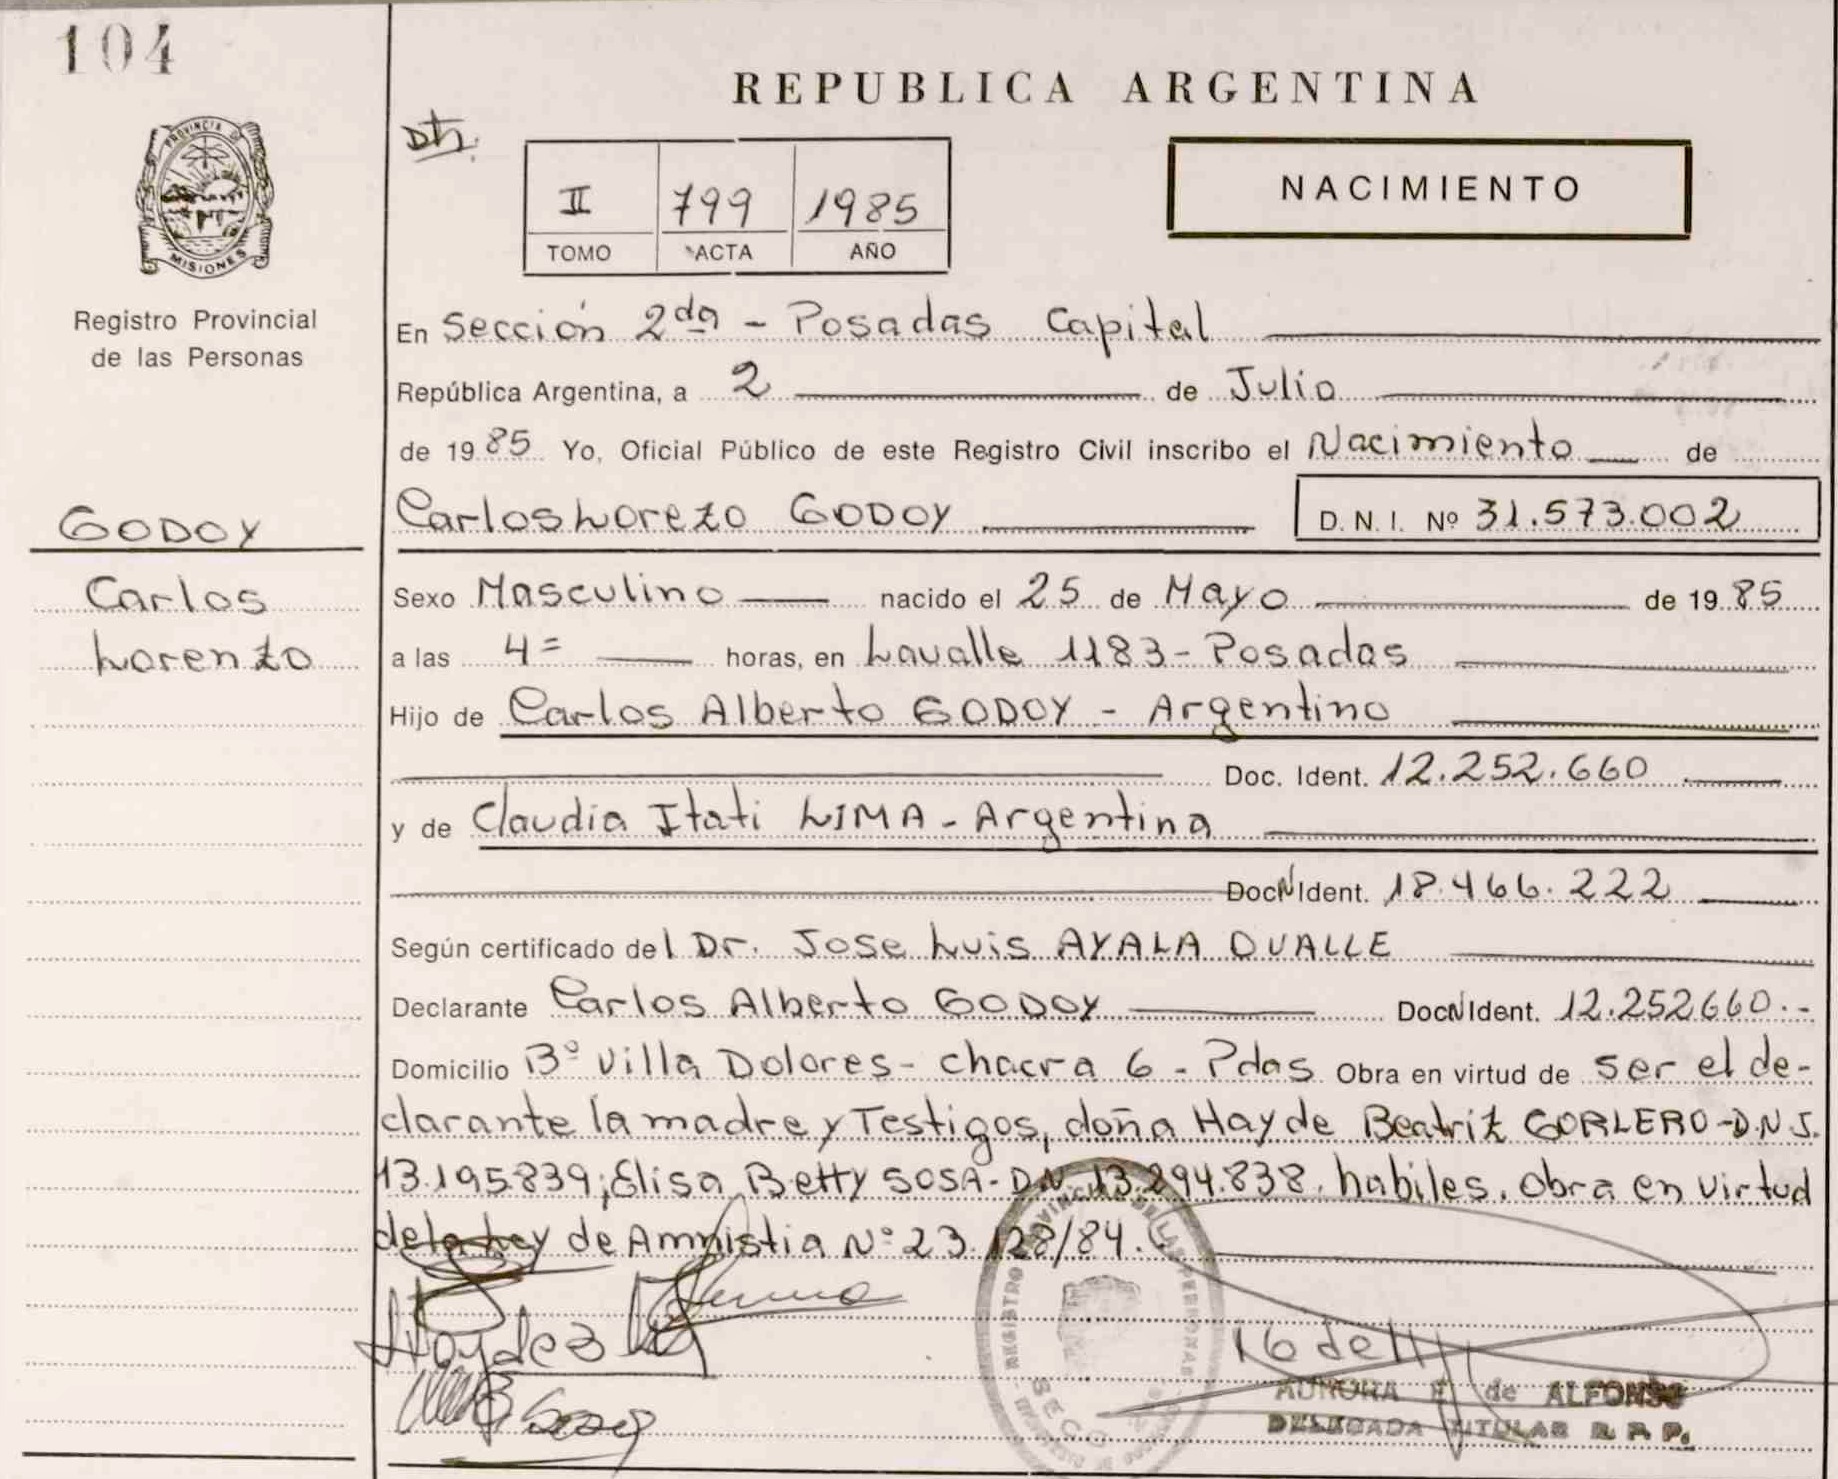 104
PROVINCIA DE
MISIONES
Registro Provincial
de las Personas
GODOY
Carlos
Lorenzo
REPUBLICA ARGENTINA
Dti.
II 799 1985
TOMO ACTA AÑO
NACIMIENTO
En Sección 2da - Posadas Capital
República Argentina, a 2 de Julio
de 1985 Yo, Oficial Público de este Registro Civil inscribo el Nacimiento de
Carlos Lorezo GODOY D.N.I. Nº 31.573.002
Sexo Masculino nacido el 25 de Mayo de 1985
a las 4= horas, en Lavalle 1183 - Posadas
Hijo de Carlos Alberto GODOY - Argentino
Doc. Ident. 12.252.660
y de Claudia Itati LIMA - Argentina
Doc N Ident. 18.466.222
Según certificado del Dr. Jose Luis AYALA OVALLE
Declarante Carlos Alberto GODOY Doc N Ident. 12.252660.-
Domicilio Bº Villa Dolores - chacra 6 - Pdas Obra en virtud de ser el de-
clarante la madre y Testigos, doña Hayde Beatriz GORLERO - D.N.I.
13.195.839; Elisa Betty SOSA - DN 13.294.838. habiles. Obra en virtud
de la Ley de Amnistia Nº 23.128/84.
REGISTRO PROVINCIAL DE LAS PERSONAS
Hayde B
B Sosa
AURORA de ALFONSO
DELEGADA TITULAR R. P. P.